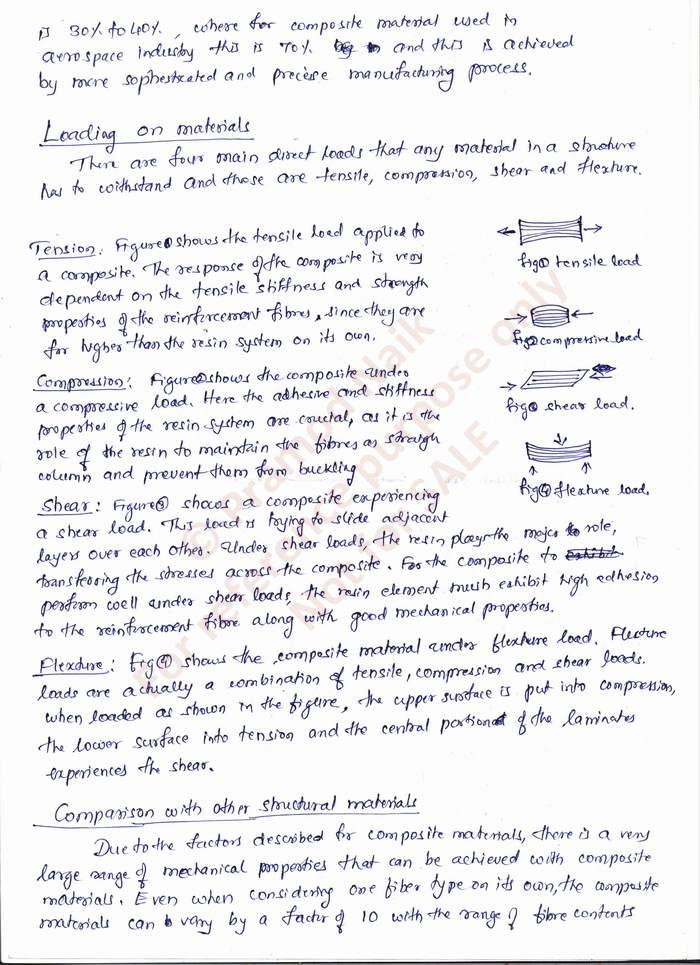 is 30% to 40%, where for composite material used in
aerospace industry this is 70% and this is achieved
by more sophesticated and precise manufacturing process.
Loading on materials
There are four main direct loads that any material in a structure
has to withstand and those are tensile, compression, shear and flexture.
Tension: Figure① shows the tensile load applied to
a composite. The response of the composite is very
dependent on the tensile stiffness and strength
properties of the reinforcement fibres, since they are
far higher than the resin system on its own.
fig① tensile load
fig② compressive load
fig③ shear load.
fig④ flexture load.
Compression: Figure② shows the composite under
a compressive load. Here the adhesive and stiffness
properties of the resin system are crucial, as it is the
role of the resin to maintain the fibres as straigh
column and prevent them from buckling
Shear: Figure③ shows a composite experiencing
a shear load. This load is trying to slide adjacent
layers over each other. Under shear loads, the resin plays the major role,
transferring the stresses across the composite. For the composite to exhibit
perform well under shear loads, the resin element mush exhibit high adhesion
to the reinforcement fibre along with good mechanical properties.
Flexture: Fig④ shows the composite material under flexture load. Flexture
loads are actually a combination of tensile, compression and shear loads.
when loaded as shown in the figure, the upper surface is put into compression,
the lower surface into tension and the central portion of the laminates
experiences the shear.
Comparison with other structural materials
Due to the factors described for composite materials, there is a very
large range of mechanical properties that can be achieved with composite
materials. Even when considering one fiber type on its own, the composite
materials can vary by a factor of 10 with the range of fibre contents
© Pramod Naik
For reference purpose only
Not for SALE